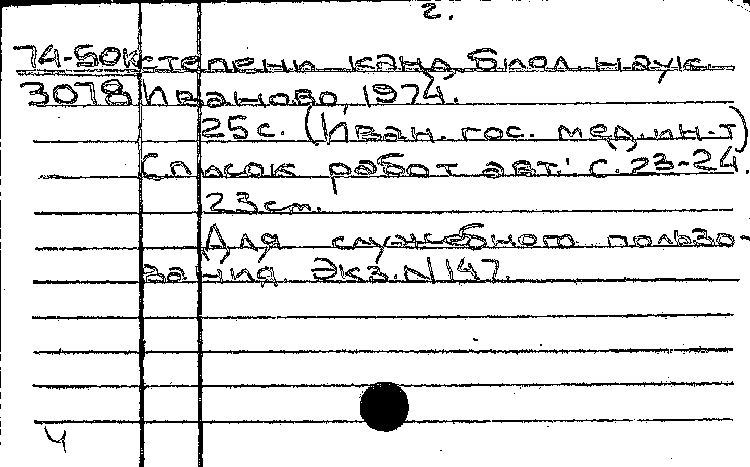 2.
74-50к степени канд. биол. наук.
3078 Иваново, 1974.
25с. (Иван. гос. мед. ин-т)
Список работ авт.: с. 23-24.
23см.
Для служебного пользо-
вания. Экз. N 147.
ч